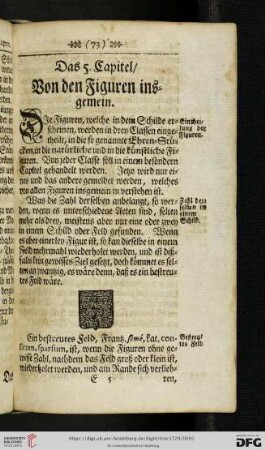 (73)
Das 5. Capitel/
Von den Figuren ins-
gemein.
Die Figuren, welche in dem Schilde er-
scheinen, werden in drey Classen einge-
theilt, in die so genannte Ehren-Stü-
cken, in die natürliche und in die künstliche Fi-
guren. Von jeder Classe soll in einem besondern
Capitel gehandelt werden. Jetzo wird nur ei-
nes und das andere gemeldet werden, welches
von allen Figuren insgemein zu verstehen ist.
Eintheilung der
Figuren.
Was die Zahl derselben anbelangt, so wer-
den, wenn es unterschiedene Arten sind, selten
mehr als drey, meistens aber nur eine oder zwey
in einem Schild oder Feld gefunden. Wenn
es aber einerley Figur ist, so kan dieselbe in einem
Feld mehrmahl wiederholet werden, und ist diß-
falls kein gewisses Ziel gesetzt, doch kommet es sel-
ten an zwantzig, es wäre denn, daß es ein bestreu-
tes Feld wäre.
Zahl derselben in
einem
Schild.
Ein bestreutes Feld, Frantz. semé, Lat. con-
situm, sparsum, ist, wenn die Figuren ohne ge-
wisse Zahl, nachdem das Feld groß oder klein ist,
wiederholet werden, und am Rande sich verlieh-
Bestreutes Feld.
E 5
ren,